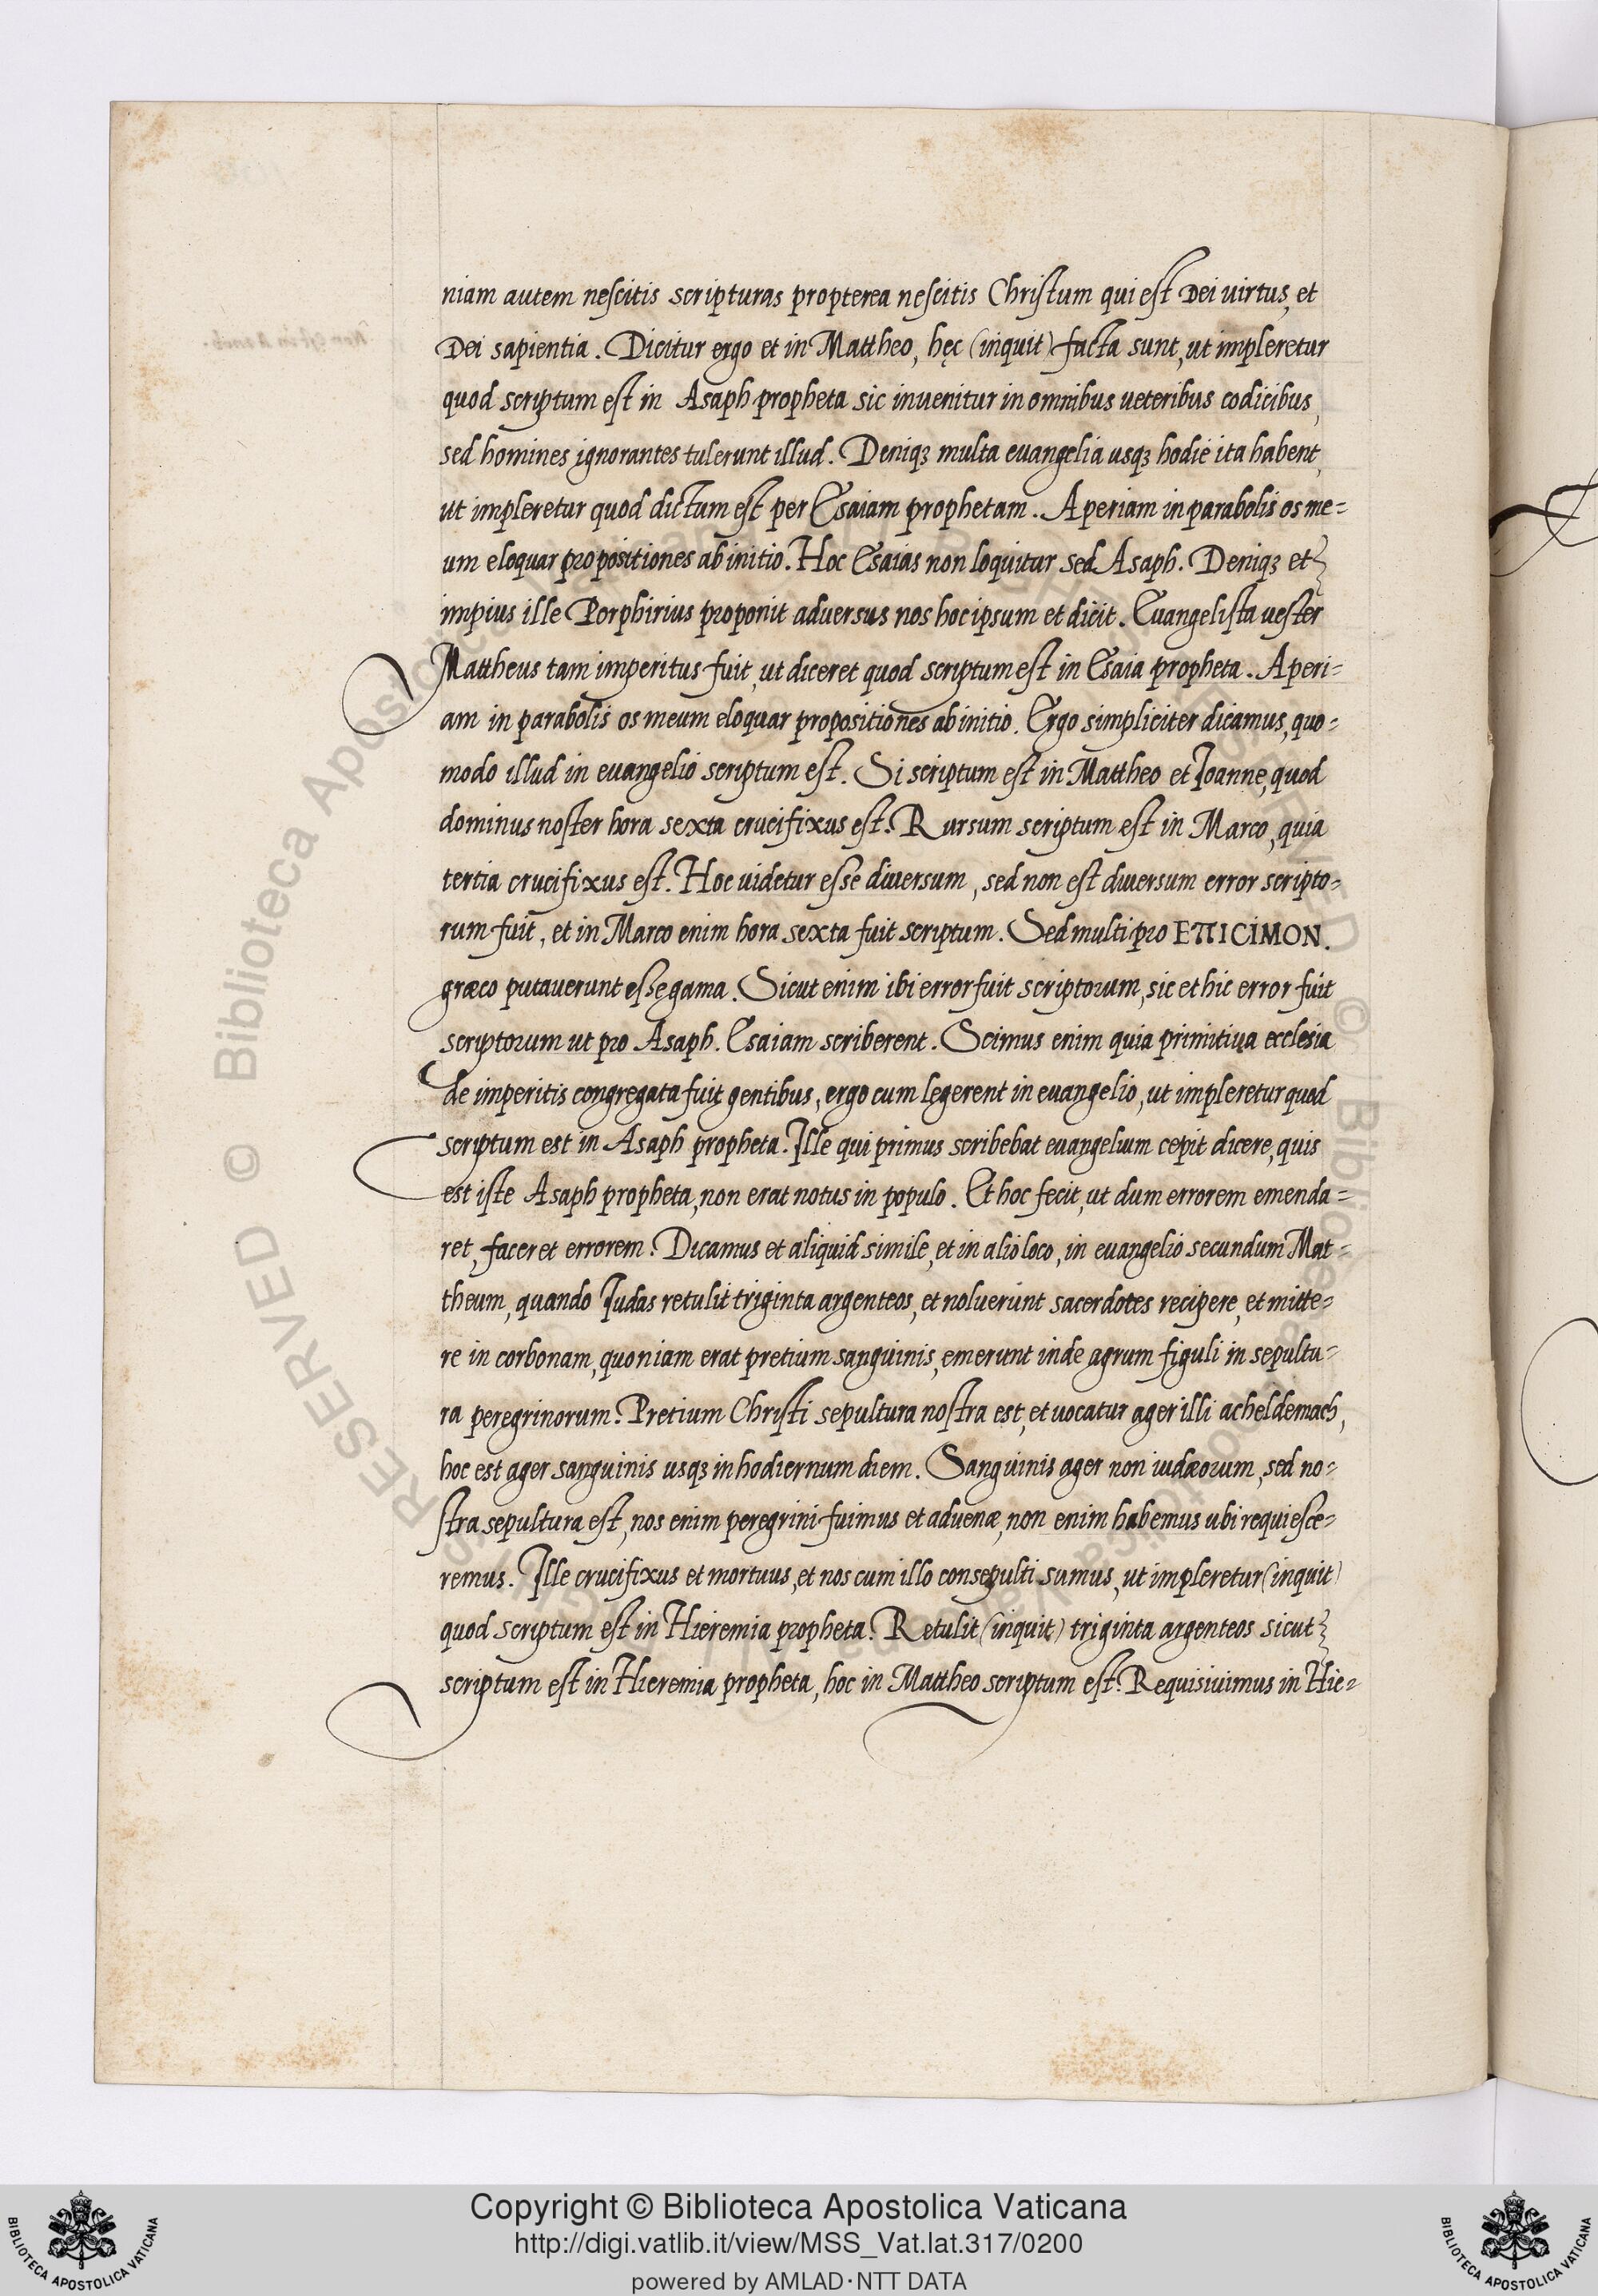 niam autem nescitis scripturas propterea nescitis Christum qui est Dei uirtus, et
Dei sapientia. Dicitur ergo et in Mattheo, hęc (inquit) facta sunt, ut impleretur
quod scriptum est in Asaph propheta sic inuenitur in omnibus ueteribus codicibus,
sed homines ignorantes tulerunt illud. Deniqꝫ multa euangelia usqꝫ hodie ita habent,
ut impleretur quod dictum est per Esaiam prophetam. Aperiam in parabolis os me=
um eloquar propositiones ab initio. Hoc Esaias non loquitur sed Asaph. Deniqꝫ et
impius ille Porphirius proponit aduersus nos hoc ipsum et dicit. Euangelista uester
Mattheus tam imperitus fuit, ut diceret quod scriptum est in Esaia propheta. Aperi=
am in parabolis os meum eloquar propositiones ab initio. Ergo simpliciter dicamus, quo=
modo illud in euangelio scriptum est. Si scriptum est in Mattheo et Ioanne, quod
dominus noster hora sexta crucifixus est? Rursum scriptum est in Marco, quia
tertia crucifixus est. Hoc uidetur esse diuersum, sed non est diuersum error scripto=
rum fuit, et in Marco enim hora sexta fuit scriptum. Sed multi pro EΠICIMON.
græco putauerunt esse gama. Sicut enim ibi error fuit scriptorum, sic et hic error fuit
scriptorum ut pro Asaph. Esaiam scriberent. Scimus enim quia primitiua ecclesia
de imperitis congregata fuit gentibus, ergo cum legerent in euangelio, ut impleretur quod
scriptum est in Asaph propheta. Ille qui primus scribebat euangelium cepit dicere, quis
est iste Asaph propheta, non erat notus in populo. Et hoc fecit, ut dum errorem emenda=
ret, faceret errorem? Dicamus et aliquid simile, et in alio loco, in euangelio secundum Mat=
theum, quando Iudas retulit triginta argenteos, et noluerunt sacerdotes recipere, et mitte=
re in corbonam, quoniam erat pretium sanguinis, emerunt inde agrum figuli in sepultu=
ra peregrinorum? Pretium Christi sepultura nostra est, et uocatur ager illi acheldemach,
hoc est ager sanguinis usqꝫ in hodiernum diem. Sanguinis ager non iudæorum, sed no=
stra sepultura est, nos enim peregrini fuimus et aduenæ, non enim habemus ubi requiesce=
remus. Ille crucifixus et mortuus, et nos cum illo consepulti sumus, ut impleretur (inquit)
quod scriptum est in Hieremia propheta? Retulit (inquit) triginta argenteos sicut
scriptum est in Hieremia propheta, hoc in Mattheo scriptum est? Requisiuimus in Hie=
RESERVED © Biblioteca Apostolica
Copyright © Biblioteca Apostolica Vaticana
http://digi.vatlib.it/view/MSS_Vat.lat.317/0200
powered by AMLAD·NTT DATA
BIBLIOTECA APOSTOLICA VATICANA
BIBLIOTECA APOSTOLICA VATICANA